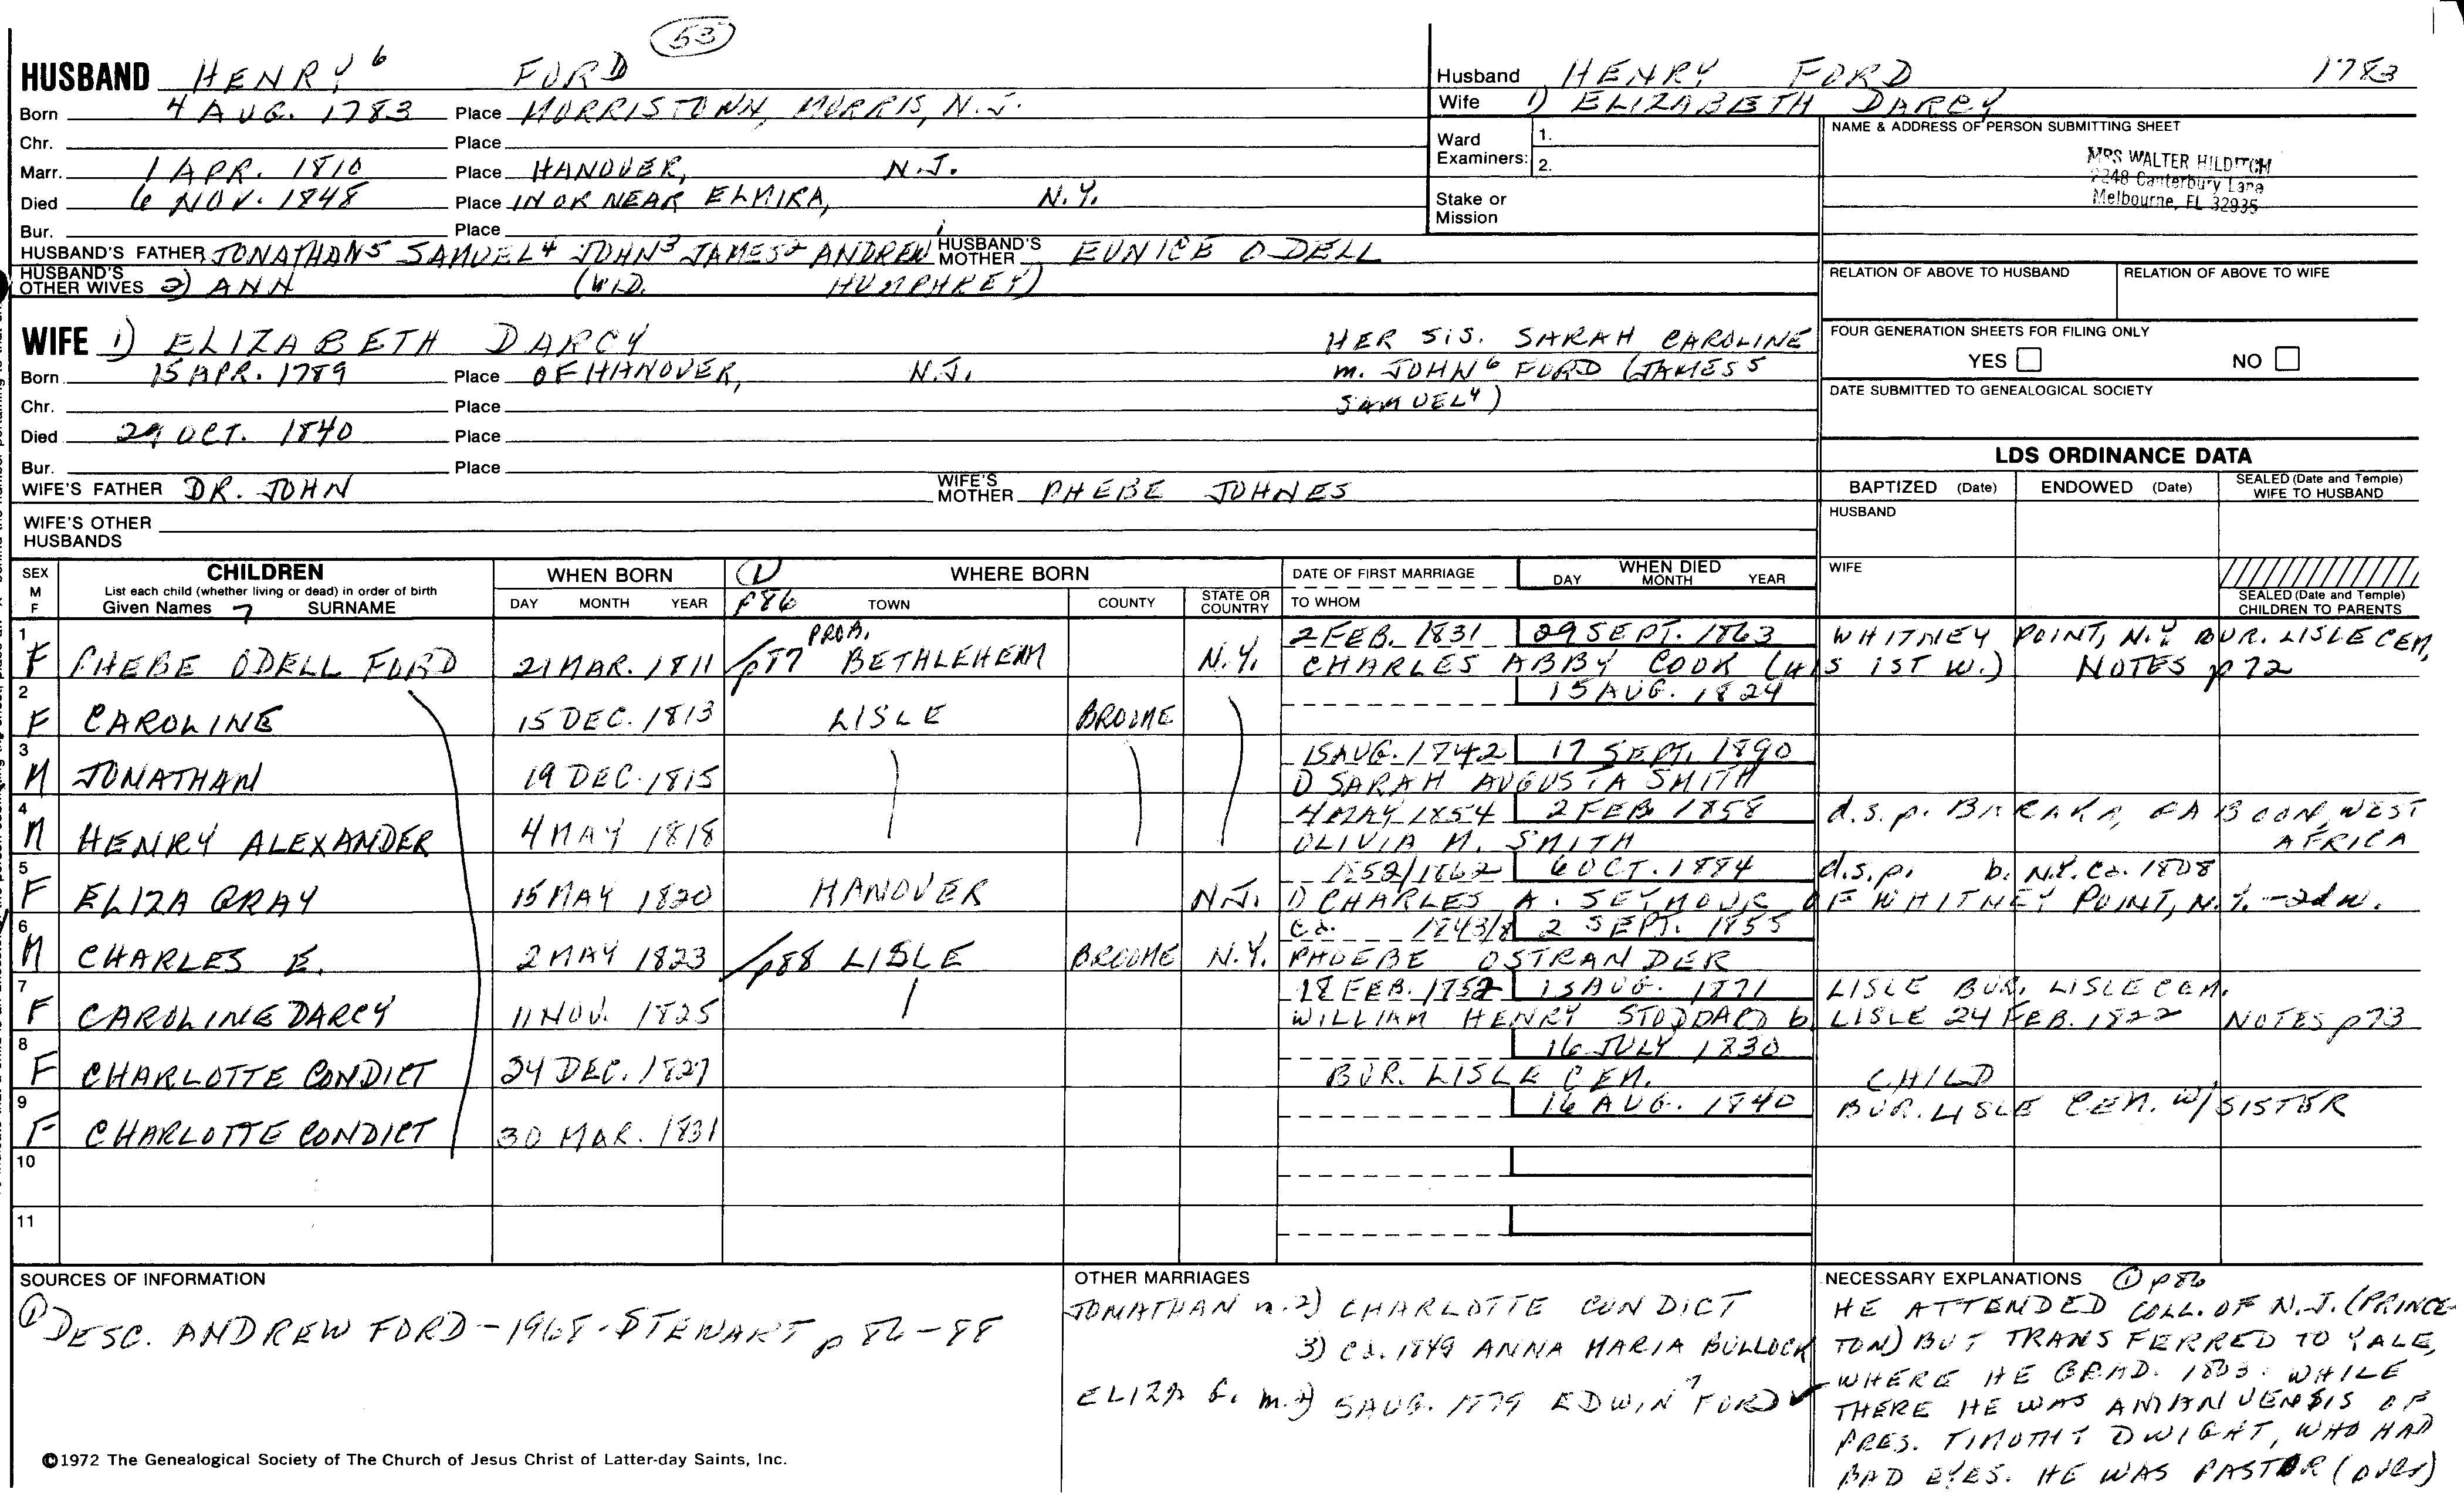 53
HUSBAND HENRY 6 FORD
Born 4 AUG. 1783 Place MORRISTOWN, MORRIS, N.J.
Chr. Place
Marr. 1 APR. 1810 Place HANOVER, N.J.
Died 6 NOV. 1848 Place IN OR NEAR ELMIRA, N.Y.
Bur. Place
HUSBAND'S FATHER JONATHAN5 SAMUEL4 JOHN3 JAMES2 ANDREW1 HUSBAND'S MOTHER EUNICE ODELL
HUSBAND'S OTHER WIVES 2) ANN (WID. HUMPHREY)
Husband HENRY FORD 1783
Wife 1) ELIZABETH DARCY
Ward Examiners: 1.
2.
Stake or Mission
NAME & ADDRESS OF PERSON SUBMITTING SHEET
MRS WALTER HILDITCH
2248 Canterbury Lane
Melbourne, FL 32935
RELATION OF ABOVE TO HUSBAND RELATION OF ABOVE TO WIFE
FOUR GENERATION SHEETS FOR FILING ONLY
YES NO
DATE SUBMITTED TO GENEALOGICAL SOCIETY
WIFE 1) ELIZABETH DARCY HER SIS. SARAH CAROLINE
Born 15 APR. 1789 Place OF HANOVER, N.J. m. JOHN6 FORD (JAMES5
Chr. Place SAMUEL4)
Died 29 OCT. 1840 Place
Bur. Place
WIFE'S FATHER DR. JOHN WIFE'S MOTHER PHEBE JOHNES
WIFE'S OTHER HUSBANDS
LDS ORDINANCE DATA
BAPTIZED (Date) ENDOWED (Date) SEALED (Date and Temple) WIFE TO HUSBAND
HUSBAND
WIFE
SEALED (Date and Temple) CHILDREN TO PARENTS
SEX M F CHILDREN List each child (whether living or dead) in order of birth Given Names 7 SURNAME
WHEN BORN DAY MONTH YEAR
1 p86 WHERE BORN TOWN COUNTY STATE OR COUNTRY
DATE OF FIRST MARRIAGE TO WHOM
WHEN DIED DAY MONTH YEAR
1 F PHEBE ODELL FORD 21 MAR. 1811 p87 PROB. BETHLEHEM N.Y. 2 FEB. 1831 29 SEPT. 1863 WHITNEY POINT, N.Y. BUR. LISLE CEM,
CHARLES ABBY COOK (HIS 1ST W.) NOTES p72
2 F CAROLINE 15 DEC. 1813 LISLE BROOME 15 AUG. 1824
3 M JONATHAN 19 DEC. 1815 15 AUG. 1842 17 SEPT. 1890
1) SARAH AUGUSTA SMITH
4 M HENRY ALEXANDER 4 MAY 1818 4 MAY 1854 2 FEB 1858 d.s.p. BARAKA, GABOON, WEST AFRICA
OLIVIA M. SMITH
5 F ELIZA GRAY 15 MAY 1820 HANOVER N.J. 1852/1862 6 OCT. 1884 d.s.p. b. N.Y. Co. 1808
1) CHARLES A. SEYMOUR OF WHITNEY POINT, N.Y. - 2d w.
6 M CHARLES E. 2 MAY 1823 p88 LISLE BROOME N.Y. Ca. 1843/8 2 SEPT. 1855
PHOEBE OSTRANDER
7 F CAROLINE DARCY 11 NOV. 1825 18 FEB. 1852 13 AUG. 1871 LISLE BUR. LISLE CEM.
WILLIAM HENRY STODDARD b LISLE 24 FEB. 1822 NOTES p73
8 F CHARLOTTE CONDICT 24 DEC. 1827 16 JULY 1830
BUR. LISLE CEM. CHILD
9 F CHARLOTTE CONDICT 30 MAR. 1831 16 AUG. 1840 BUR. LISLE CEM. W/SISTER
10
11
SOURCES OF INFORMATION
1 DESC. ANDREW FORD - 1968 - STEWART p 86-88
OTHER MARRIAGES
JONATHAN m. 2) CHARLOTTE CONDICT
3) Ca. 1849 ANNA MARIA BULLOCK
ELIZA G. m. 2) 5 AUG. 1879 EDWIN7 FORD
NECESSARY EXPLANATIONS 1 p86
HE ATTENDED COLL. OF N.J. (PRINCE-
TON) BUT TRANSFERRED TO YALE,
WHERE HE GRAD. 1803. WHILE
THERE HE WAS AMANUENSIS OF
PRES. TIMOTHY DWIGHT, WHO HAD
BAD EYES. HE WAS PASTOR (over)
©1972 The Genealogical Society of The Church of Jesus Christ of Latter-day Saints, Inc.